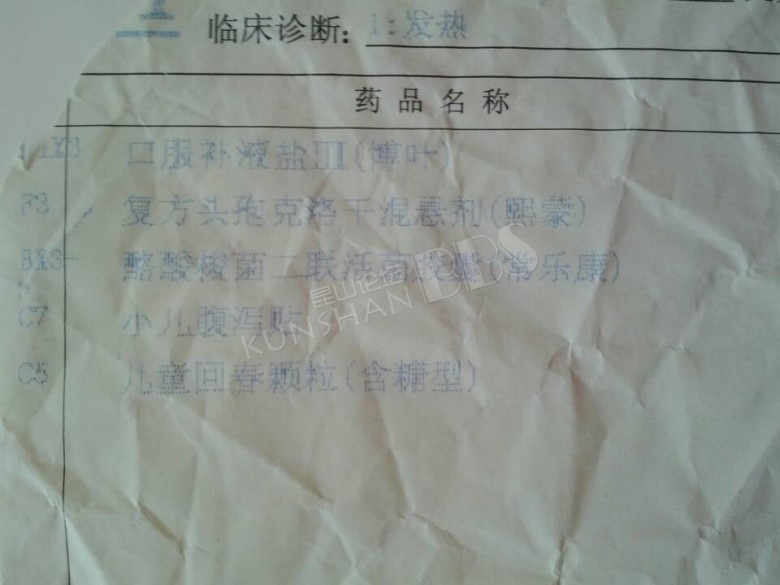 临床诊断: 1:发热
药品名称
口服补液盐III(博叶)
F3 复方头孢克洛干混悬剂(熙蒙)
酪酸梭菌二联活菌胶囊(常乐康)
C7 小儿腹泻贴
C5 儿童回春颗粒(含糖型)
昆山论坛
KUNSHAN BBS